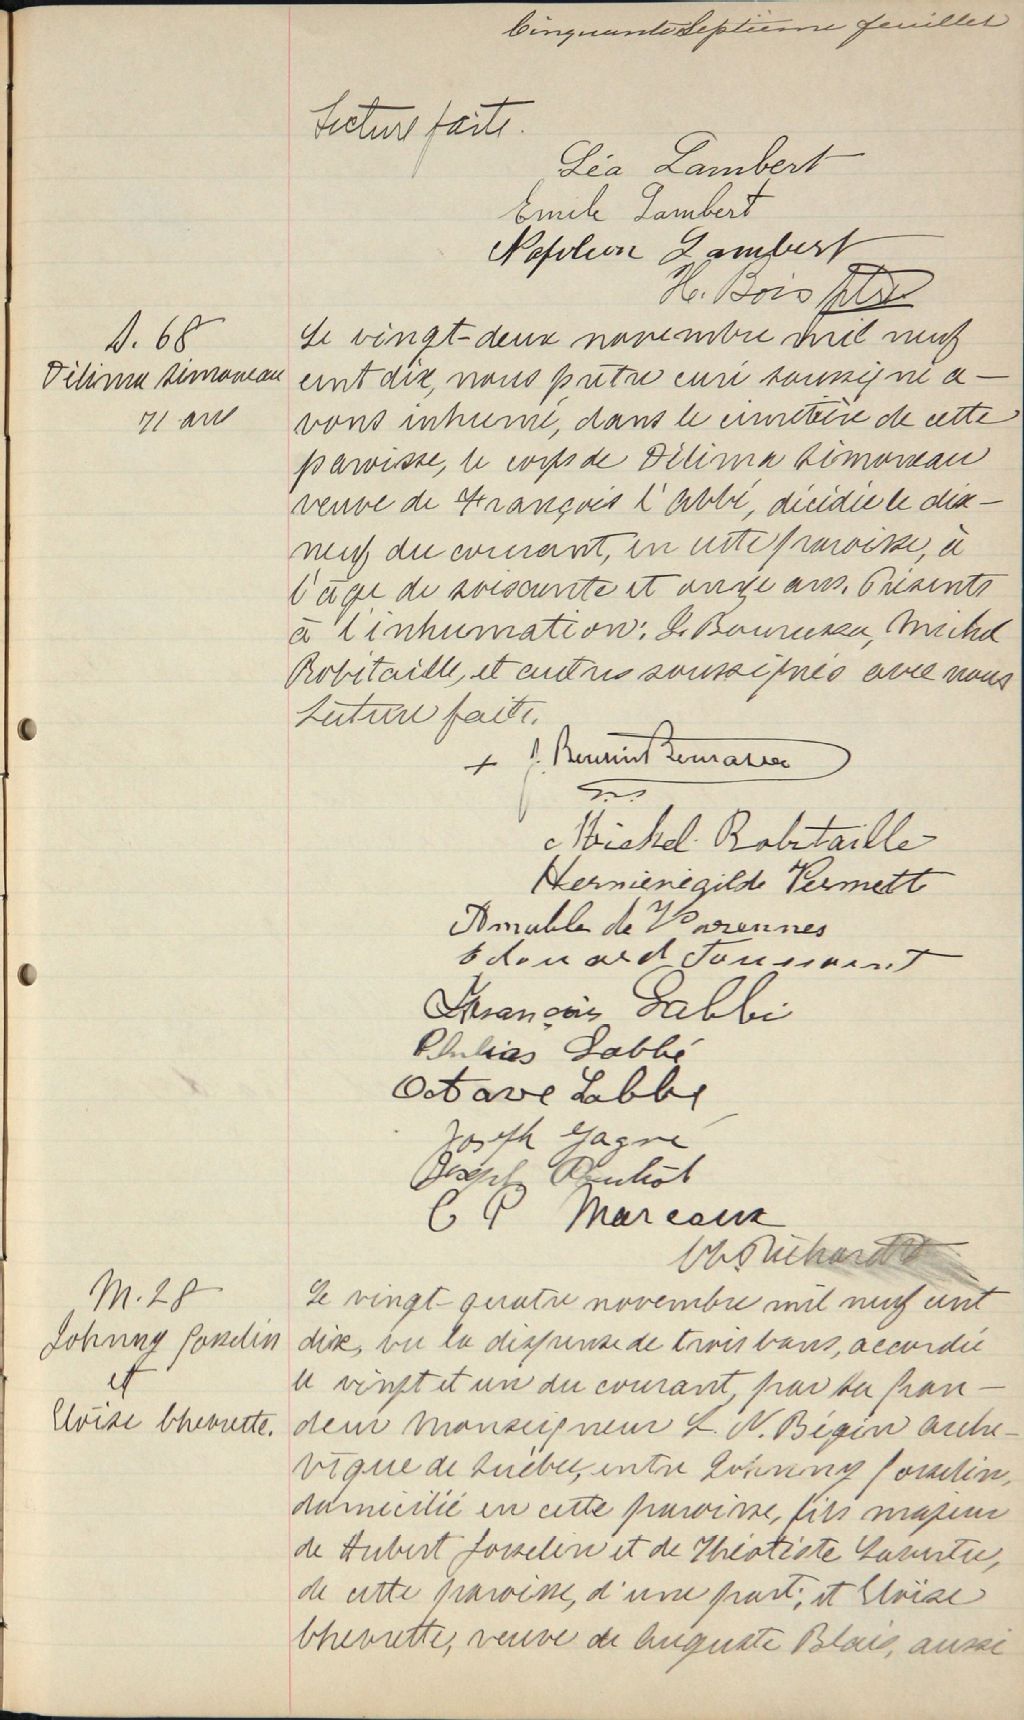 Cinquante Septième feuillet
Lecture faite.
Léa Lambert
Emile Lambert
Napoleon Lambert
H. Bois ptre
S. 68
Délima Simoneau
71 ans
Le vingt-deux novembre mil neuf
cent dix, nous prêtre curé soussigné a-
vons inhumé, dans le cimetière de cette
paroisse, le corps de Délima Simoneau
veuve de François l'Abbé, décédée le dix-
neuf du courant, en cette paroisse, à
l'âge de soixante et onze ans. Présents
à l'inhumation: J. Bourassa, Michel
Robitaille, et autres soussignés avec nous
Lecture faite.
+ J. Bourassa
Michel Robitaille
Hermenegilde Vermette
Amable de Varennes
Edouard Toussaint
François Labbé
Philias Labbé
Octave Labbé
Joseph Gagné
Joseph Pouliot
C P Marcoux
Richard
M. 28
Johnny Josselin
et
Eloïse Chevrette.
Le vingt-quatre novembre mil neuf cent
dix, vu la dispense de trois bans, accordée
le vingt et un du courant, par Sa Gran-
deur Monseigneur L. N. Bégin Arche-
vêque de Québec, entre Johnny Josselin,
domicilié en cette paroisse, fils majeur
de Hubert Josselin et de Théotiste Lavertu,
de cette paroisse, d'une part; et Eloïse
Chevrette, veuve de Auguste Blais, aussi